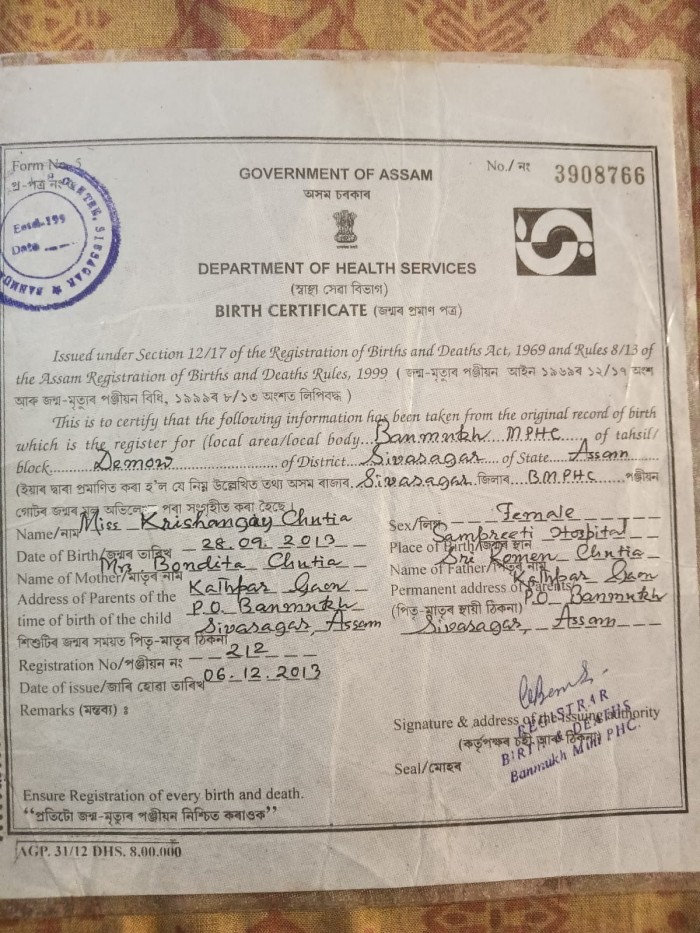 Form No. 5
No./ নং 3908766
প্ৰ-পত্ৰ নং
GOVERNMENT OF ASSAM
অসম চৰকাৰ
Estd-199
Date
SIBSAGAR ★ BANMU
DEPARTMENT OF HEALTH SERVICES
(স্বাস্থ্য সেৱা বিভাগ)
BIRTH CERTIFICATE (জন্মৰ প্ৰমাণ পত্ৰ)
Issued under Section 12/17 of the Registration of Births and Deaths Act, 1969 and Rules 8/13 of
the Assam Registration of Births and Deaths Rules, 1999 ( জন্ম-মৃত্যুৰ পঞ্জীয়ন আইন ১৯৬৯ৰ ১২/১৭ অংশ
আৰু জন্ম-মৃত্যুৰ পঞ্জীয়ন বিধি, ১৯৯৯ৰ ৮/১৩ অংশত লিপিবদ্ধ )
This is to certify that the following information has been taken from the original record of birth
which is the register for (local area/local body...Banmukh MPHC.... of tahsil/
block....Demow....of District...Sivasagar...of State...Assam
(ইয়াৰ দ্বাৰা প্ৰমাণিত কৰা হ'ল যে নিম্ন উল্লেখিত তথ্য অসম ৰাজ্যৰ..Sivasagar..জিলাৰ..BMPHC...পঞ্জীয়ন
গোটৰ জন্মৰ মূল পৰা সংগ্ৰহীত কৰা হৈছে।
Name/নাম Miss Krishangay Chutia
Sex/লিঙ্গ Female
Date of Birth/জন্মৰ তাৰিখ 28.09.2013
Place of Birth/জন্মৰ স্থান Sampreeti Hospital
Name of Mother/মাতৃৰ নাম Mrs. Bondita Chutia
Name of Father/পিতৃৰ নাম Sri Romen Chutia
Address of Parents of the
time of birth of the child
Kathpar Gaon
P.O. Banmukh
Sivasagar, Assam
Permanent address of Parents
(পিতৃ-মাতৃৰ স্থায়ী ঠিকনা)
Kathpar Gaon
P.O. Banmukh
Sivasagar, Assam
শিশুটিৰ জন্মৰ সময়ত পিতৃ-মাতৃৰ ঠিকনা
Registration No/পঞ্জীয়ন নং 212
Date of issue/জাৰি হোৱা তাৰিখ 06.12.2013
Remarks (মন্তব্য) :
Signature & address of the issuing authority
(কৰ্তৃপক্ষৰ চহী আৰু ঠিকনা)
Seal/মোহৰ
REGISTRAR
BIRTH & DEATHS
Banmukh Mini PHC.
Ensure Registration of every birth and death.
“প্ৰতিটো জন্ম-মৃত্যুৰ পঞ্জীয়ন নিশ্চিত কৰাওক”
AGP. 31/12 DHS. 8,00.000